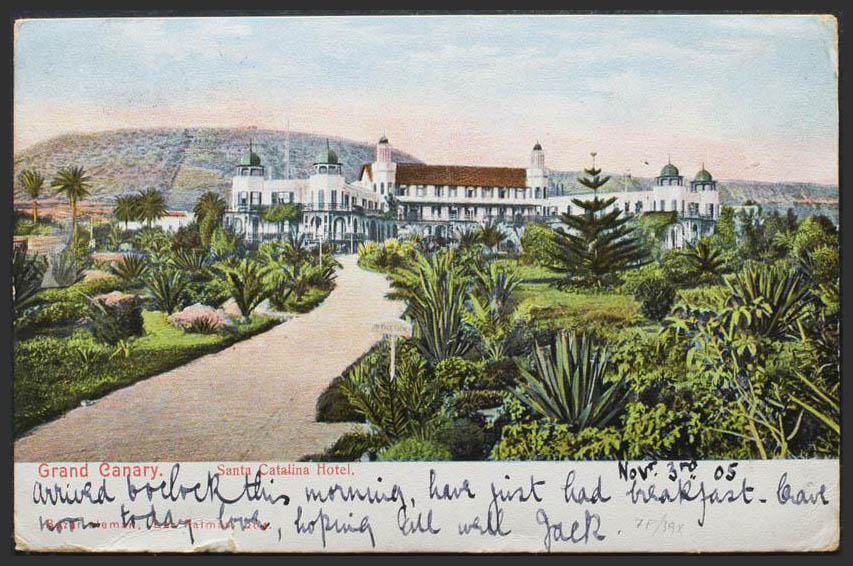 Grand Canary. Santa Catalina Hotel.
Novr. 3rd 05
arrived 6oclock this morning, have just had breakfast - leave
noon today love, hoping all well Jack.
Bazar Aleman, Las Palmas